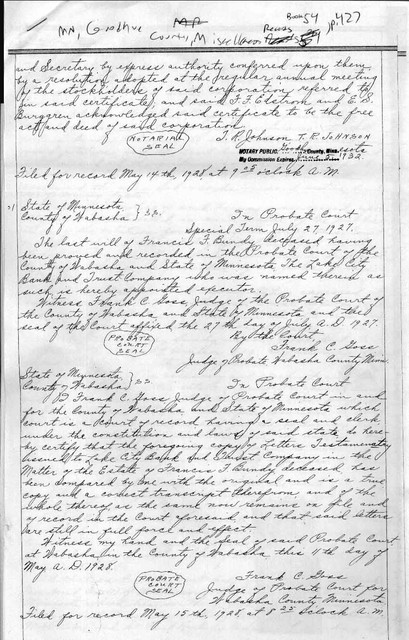 MN, Goodhue County, Miscellaneous Records Book 54 p. 427
and Secretary by express authority conferred upon them
by a resolution adopted at the regular annual meeting
of the stockholders of said corporation referred to
in said certificate, and said F. F. Elstrom and E. S.
Burggren acknowledged said certificate to be the free
act and deed of said corporation
NOTARIAL
SEAL
T. R. Johnson T. R. JOHNSON
NOTARY PUBLIC, County, Minn.
My Commission Expires 1932.
Filed for record May 14th, 1928 at 9 25 oclock A. M.
State of Minnesota
County of Wabasha } S.S. In Probate Court
Special Term July 27, 1927.
The last will of Francis F. Bundy deceased having
been proved and recorded in the Probate Court of the
County of Wabasha and State of Minnesota The Lake City
Bank and Trust Company who was named therein as
such is hereby appointed executor.
Witness Frank C. Goss, Judge of the Probate Court of
the County of Wabasha, and State of Minnesota and the
seal of the Court affixed the 27th day of July A. D. 1927.
PROBATE
COURT
SEAL
By the Court,
Frank C. Goss
Judge of Probate Wabasha County Minn.
State of Minnesota
County of Wabasha } S.S. In Probate Court
I Frank C. Goss Judge of Probate Court in and
for the County of Wabasha and State of Minnesota which
court is a court of record having a seal and clerk
under the constitution and laws of said state do here-
by certify that the foregoing copy of Letters Testamentary
issued to Lake City Bank and Trust Company in the
Matter of the Estate of Francis F. Bundy deceased has
been compared by me with the original and is a true
copy and a correct transcript therefrom, and of the
whole thereof, as the same now remains on file and
of record in the Court aforesaid and that said letters
are still in full force and effect.
Witness my hand and the seal of said Probate Court
at Wabasha in the County of Wabasha this 11th day of
May A. D. 1928.
PROBATE
COURT
SEAL
Frank C. Goss
Judge of Probate Court for
Wabasha County Minnesota
Filed for record May 15th, 1928, at 8 25 oclock A. M.